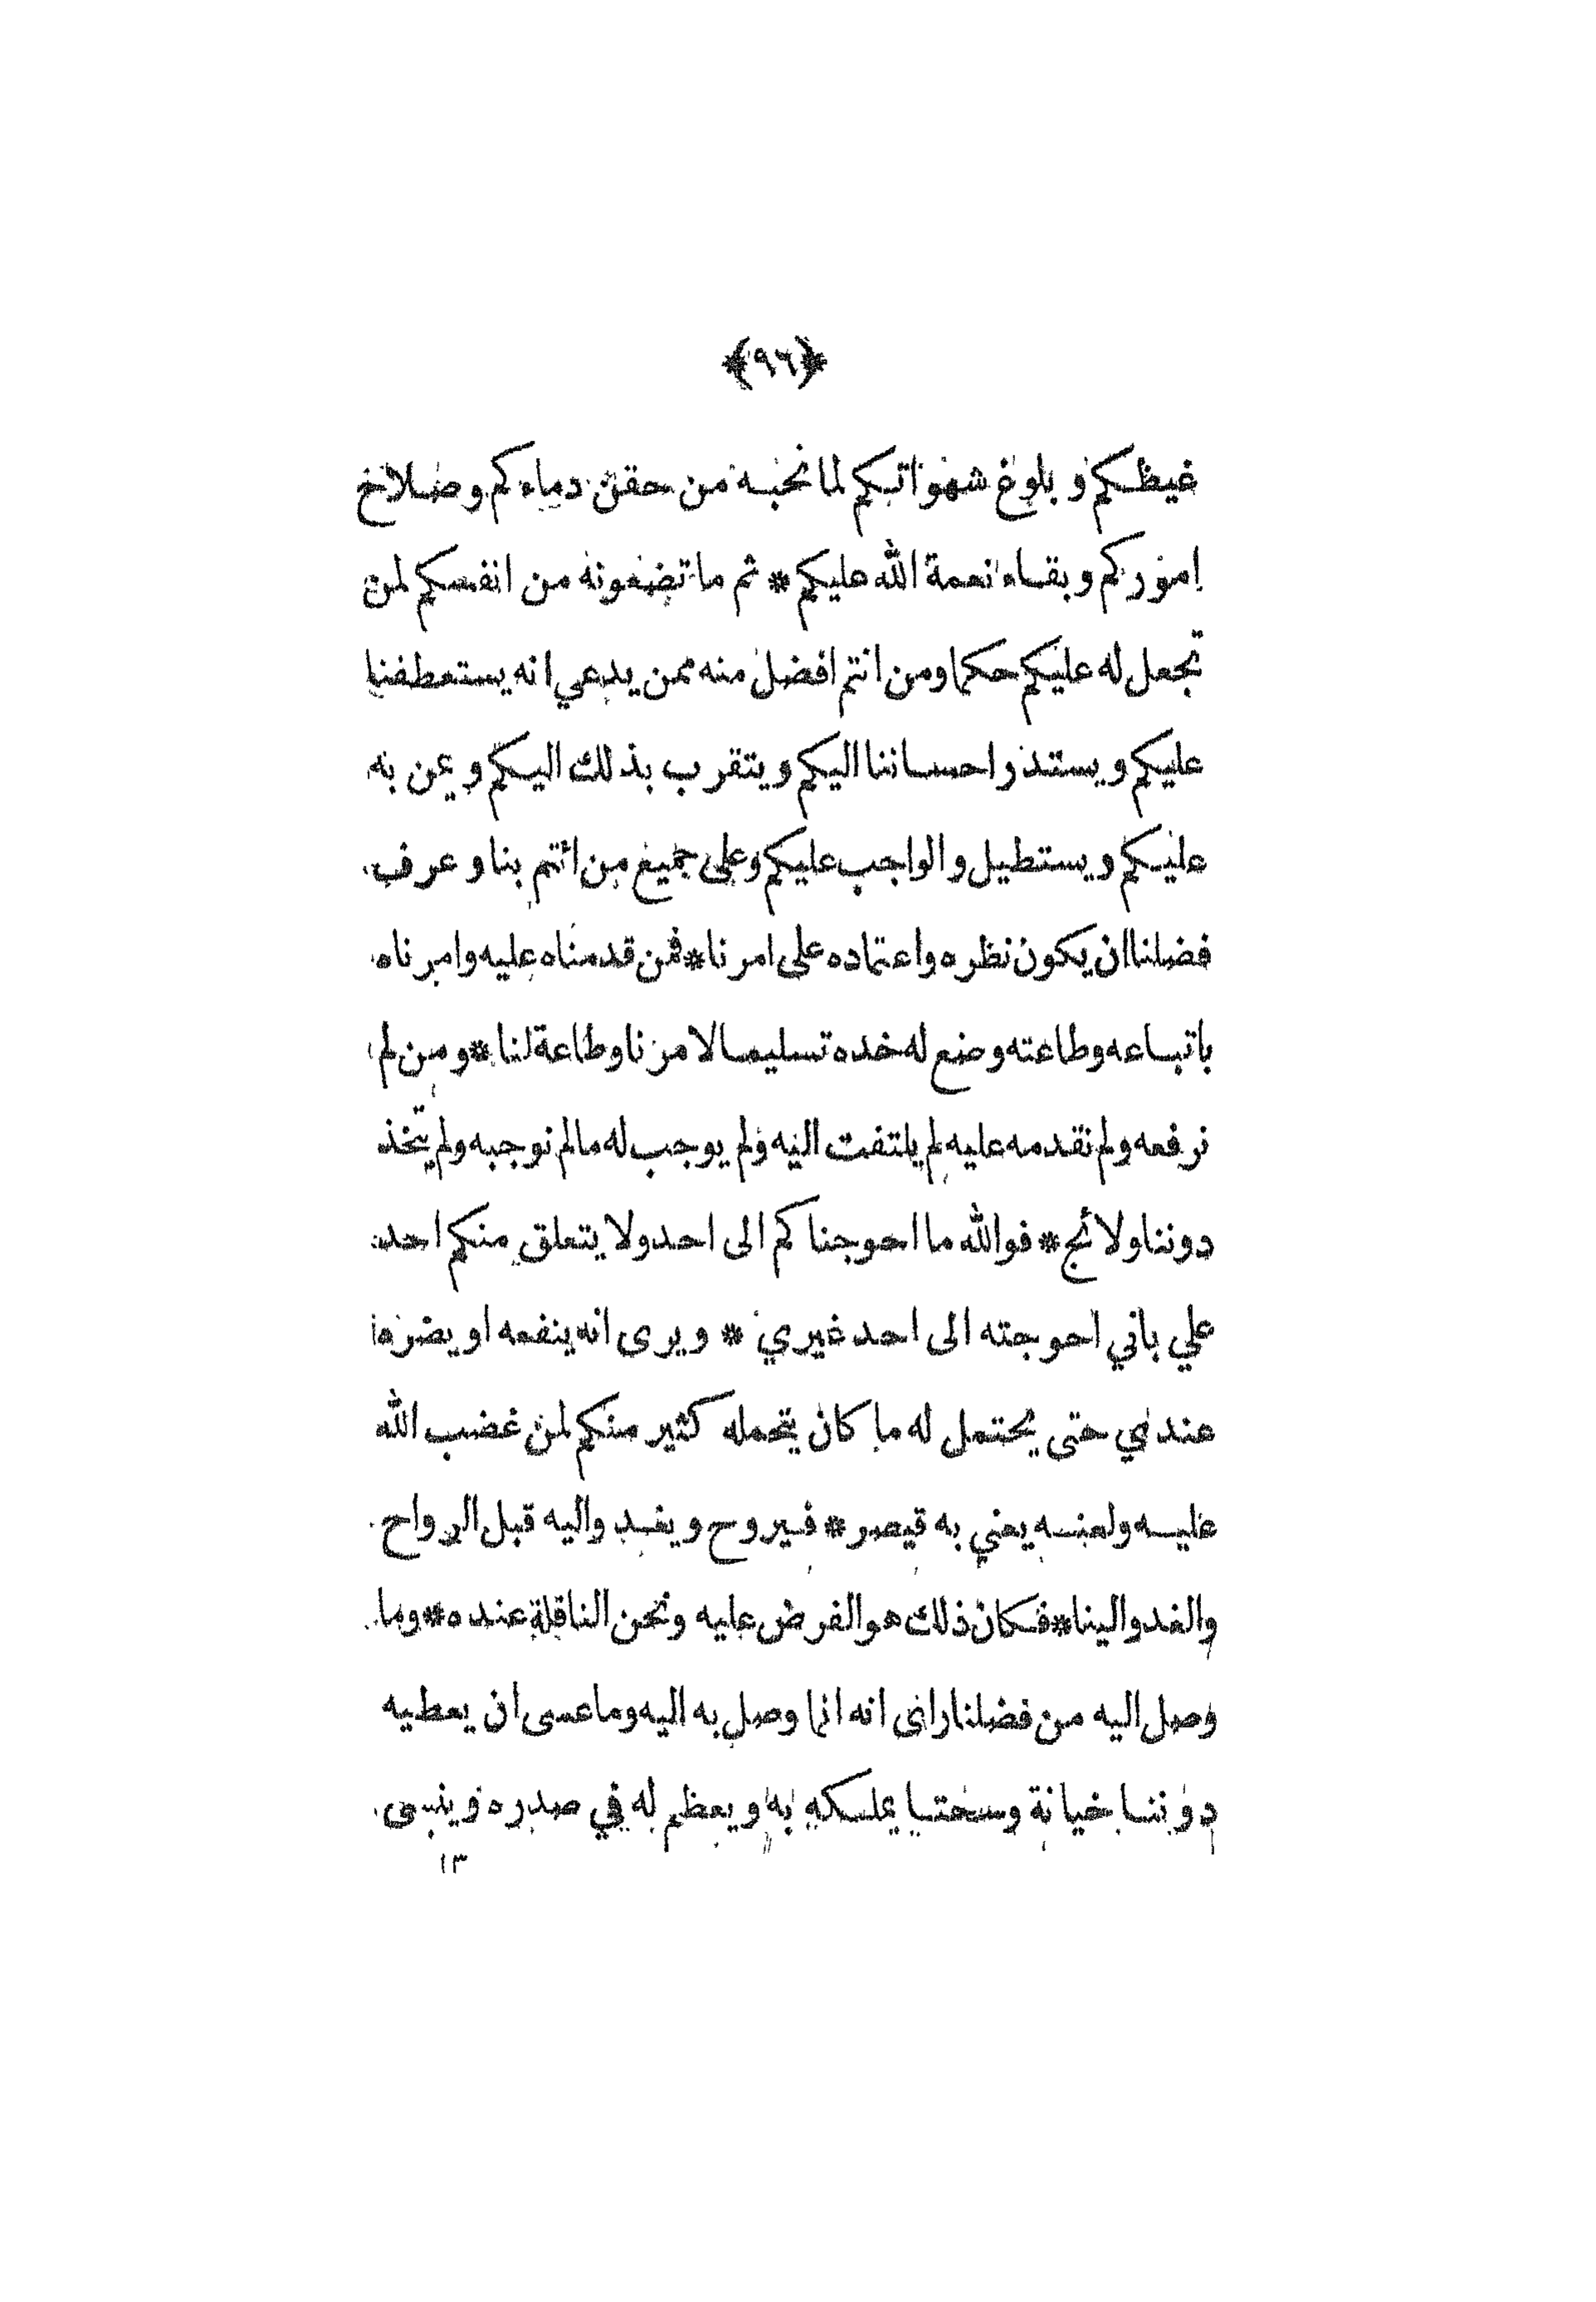 ﴿٩٦﴾
غيظكم و بلوغ شهواتكم لما نحبه من حقن دماءكم و صلاح
اموركم و بقاء نعمة الله عليكم * ثم ما تضعونه من انفسكم لمن
تجعل له عليكم حكما ومن انتم افضل منه ممن يدعي انه يستعطفنا
عليكم و يستدر احساننا اليكم و يتقرب بذلك اليكم و يمن به
عليكم و يستطيل و الواجب عليكم وعلى جميع من ائتم بنا و عرف
فضلنا ان يكون نظره واعتماده على امرنا * فمن قدمناه عليه وامرناه
باتباعه وطاعته وضع له خده تسليما لامرنا وطاعة لنا * و من لم
نرفعه ولم نقدمه عليه لم يلتفت اليه ولم يوجب له مالم نوجبه ولم يتخذ
دوننا ولائج * فوالله ما احوجناكم الى احد ولا يتعلق منكم احد
علي باني احوجته الى احد غيري * ويرى انه ينفعه او يضره
عندي حتى يحتمل له ما كان يتحمله كثير منكم لمن غضب الله
عليه ولعنه يعني به قيصر * فيروح و يغدو اليه قبل الرواح
والغدو الينا * فكان ذلك هو الفرض عليه ونحن الناقلة عنده * وما
وصل اليه من فضلنا رائ انه انما وصل به اليه وما عسى ان يعطيه
دوننا خيانة وسحتا يملكه به و يعظم له في صدره و ينسى
١٣